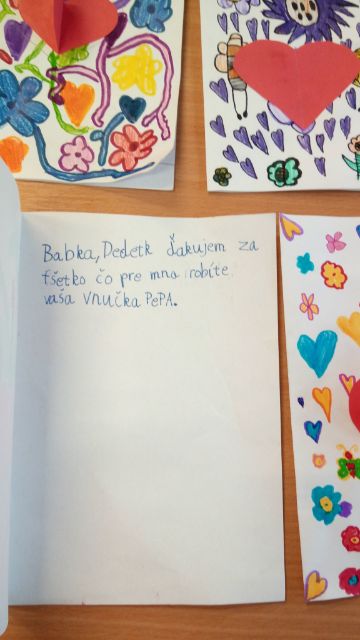 Babka, Dedetk ďakujem za
fšetko čo pre mna robíte
vaša vnučka PePA.